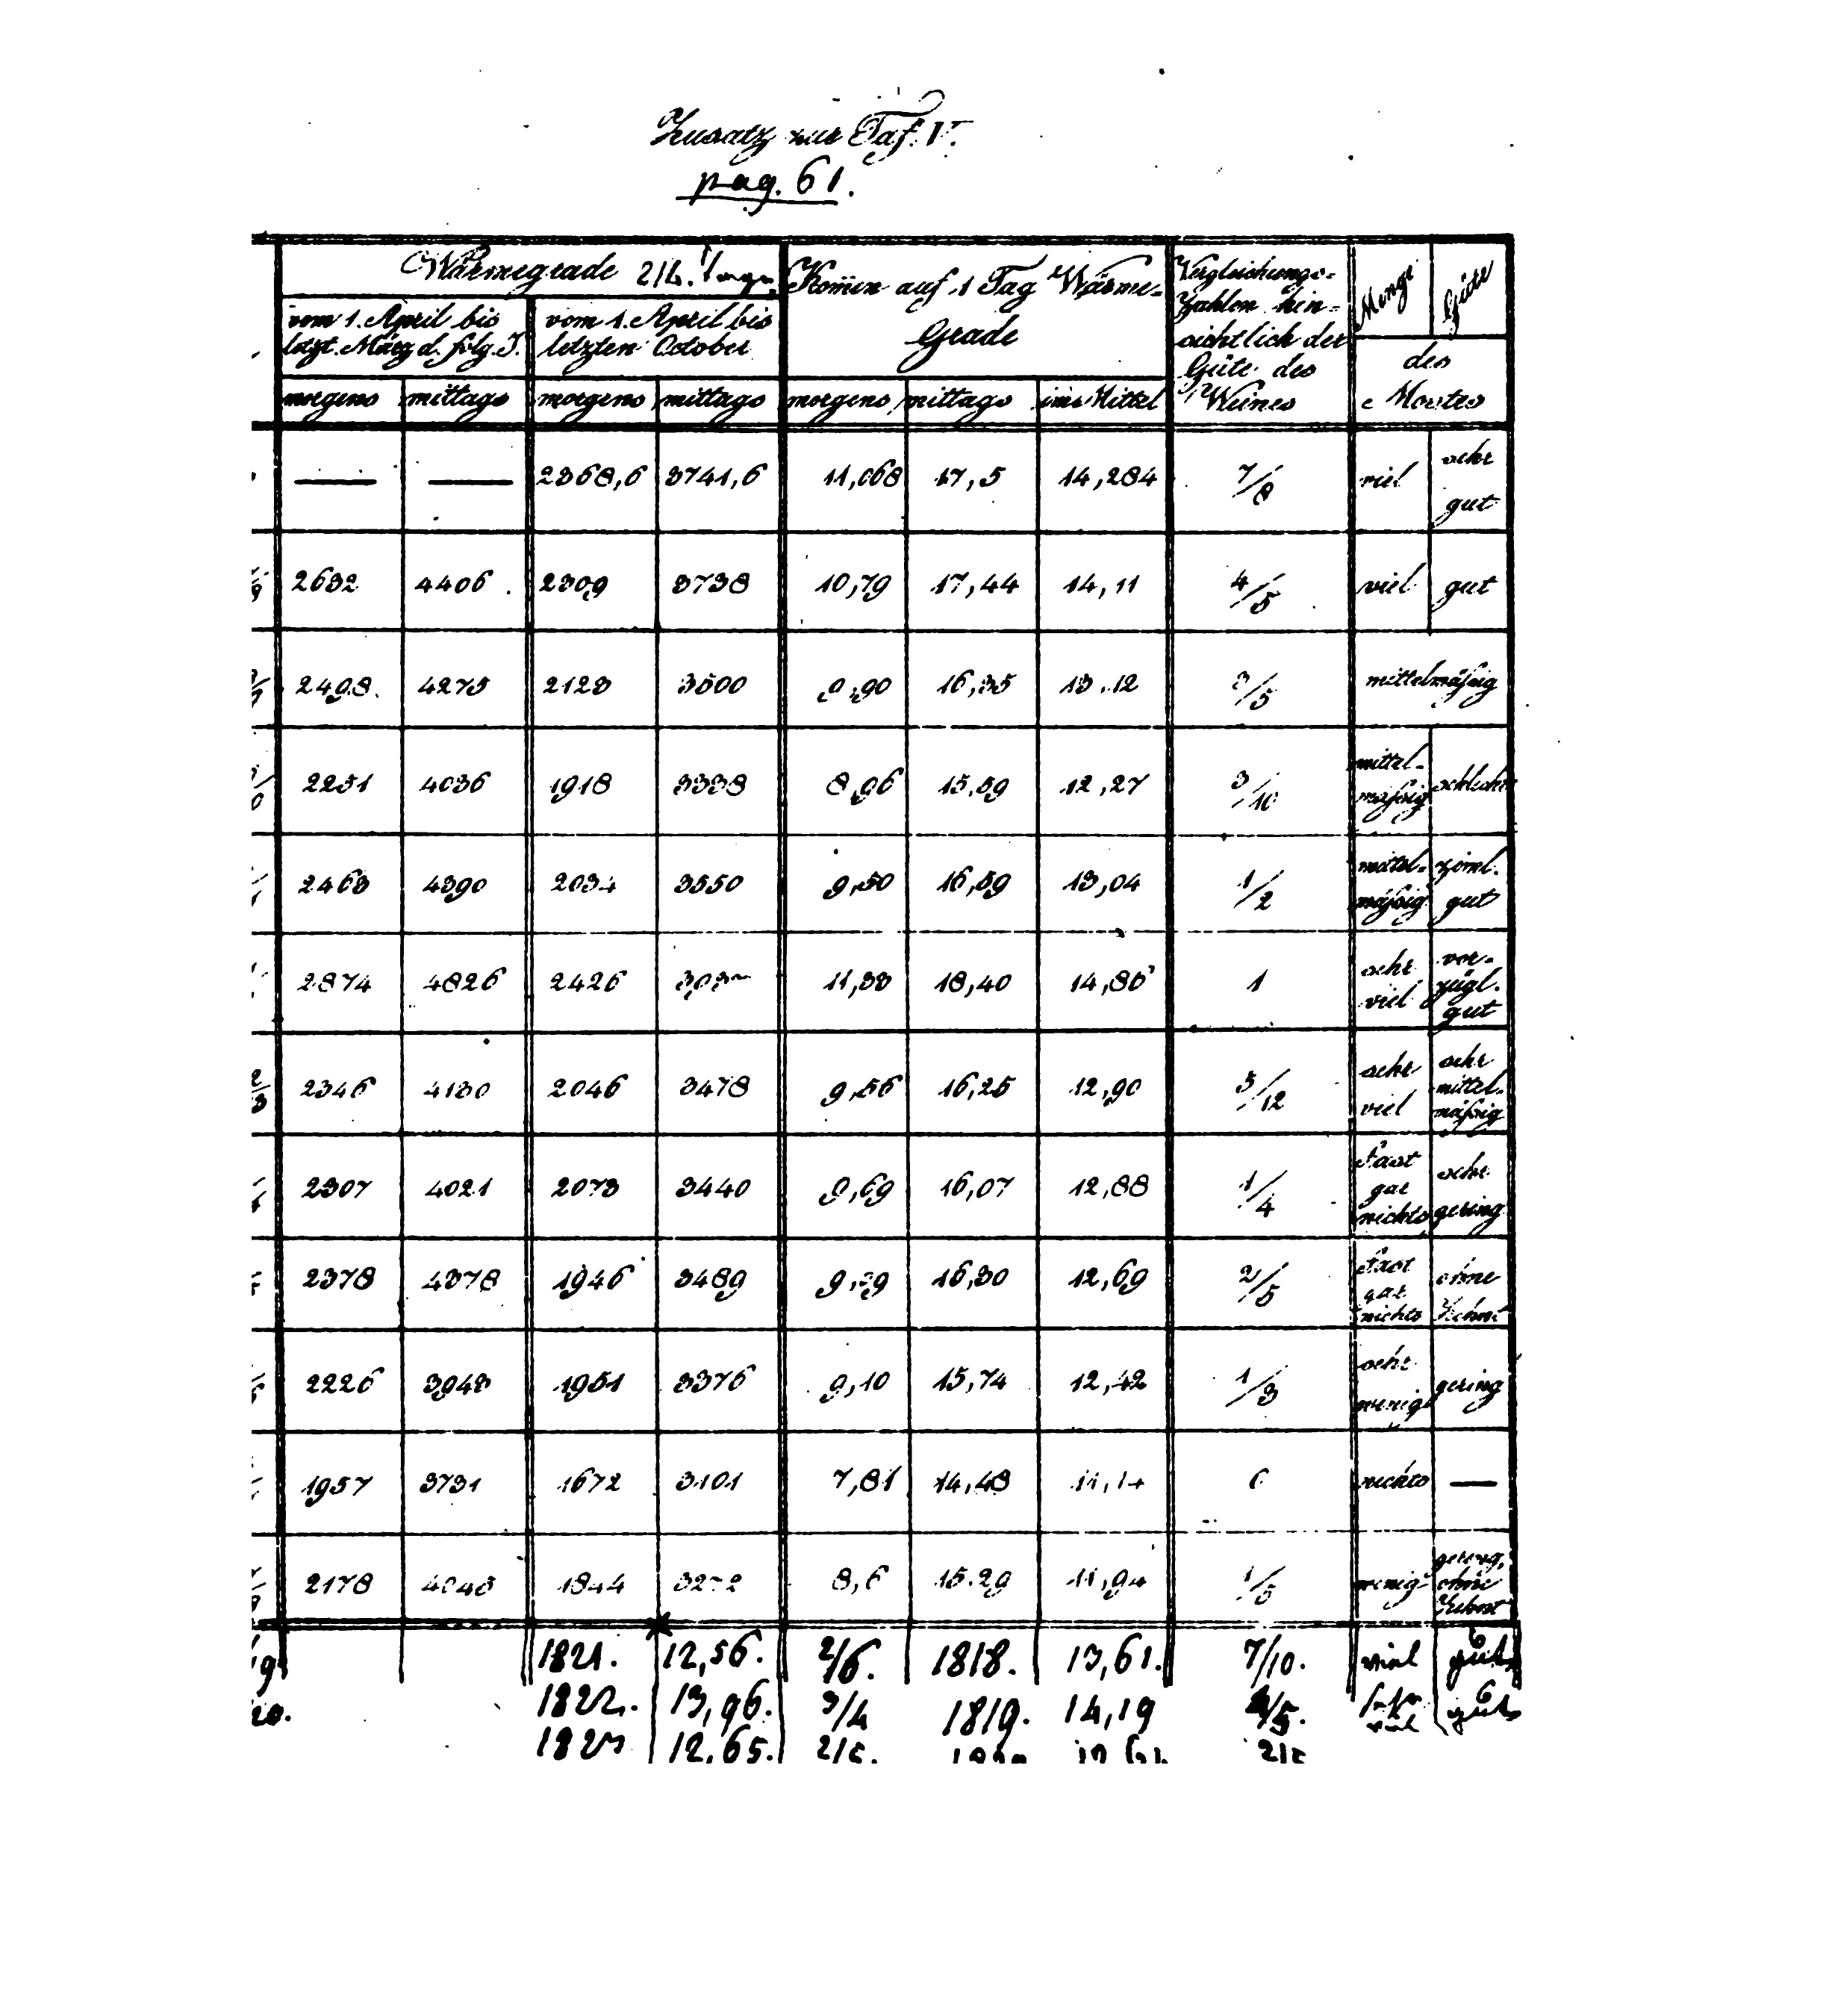 Zusatz zur Taf. V.
pag. 61.
Wärmegrade 214. Tage
Komen auf 1 Tag Wärme-
Grade
Vergleichungs-
Zahlen hin-
sichtlich der
Güte des
Weines
Menge
Güte
des
Mostes
vom 1. April bis
letzt. März d. folg. J.
vom 1. April bis
letzten October
morgens mittags morgens mittags morgens mittags im Mittel
— — 2368,6 3741,6 11,068 17,5 14,284 7/8 viel sehr gut
2632 4406 2309 3738 10,79 17,44 14,11 4/5 viel gut
2498 4275 2123 3500 9,90 16,35 13,12 3/5 mittelmäßig
2231 4036 1918 3338 8,96 15,59 12,27 3/10 mittel-mäßig schlecht
2463 4390 2034 3550 9,50 16,59 13,04 1/2 mittel-mäßig ziml. gut
2874 4826 2426 11,33 18,40 14,86 1 sehr viel vor-zügl. gut
2346 4130 2046 3478 9,56 16,25 12,90 5/12 sehr viel sehr mittel-mäßig
2307 4021 2073 3440 9,69 16,07 12,88 1/4 Fast gar nichts sehr gering
2378 4378 1946 3489 9,09 16,30 12,69 2/5 Fast gar nichts ohne
2226 3943 1951 3376 9,10 15,74 12,42 1/3 sehr wenig gering
1957 3731 1672 3101 7,81 14,48 11,14 nichts —
2178 4043 1844 3272 8,6 15.29 11,94 1/5 wenig gering, ohne
1821. 12,56. 2/6. 1818. 13,61. 7/10. viel gut
1822. 13,96. 3/4 1819. 14,19 4/5. viel gut
1823 12,65.